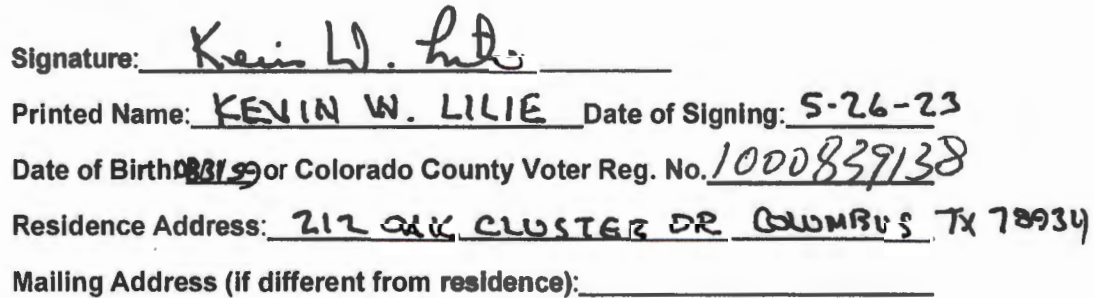 Signature: Kevin W. Lilie
Printed Name: KEVIN W. LILIE Date of Signing: 5-26-23
Date of Birth or Colorado County Voter Reg. No. 1000839138
Residence Address: 212 OAK CLUSTER DR COLUMBUS TX 78934
Mailing Address (if different from residence):